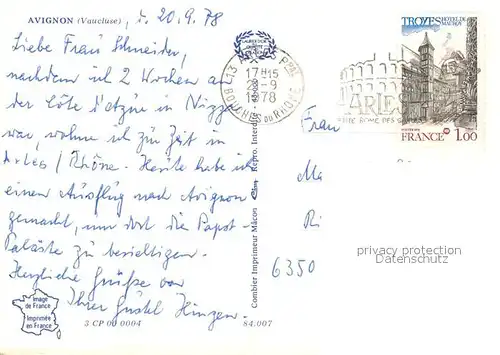 AVIGNON (Vaucluse), d. 20.9.78
Liebe Frau Schneider,
nachdem ich 2 Wochen an
der Côte d'Azur in Nizza
war, wohne ich zur Zeit in
Arles / Rhône. Heute habe ich
einen Ausflug nach Avignon
gemacht, um dort die Papst-
Paläste zu besichtigen.
Herzliche Grüße von
Ihrer Gustel Hinzen.
Image
de France
Imprimée
en France
3 CP 00 0004
84.007
Combier Imprimeur Mâcon
Repro. Interdite
13
17 H 15
9
1978
BOUCHES DU RHONE
ARLES
ROME DES
TROYES HOTEL DE MAUROY
FRANCE 1.00
Frau
Ma
Ri
6350
privacy protection
Datenschutz